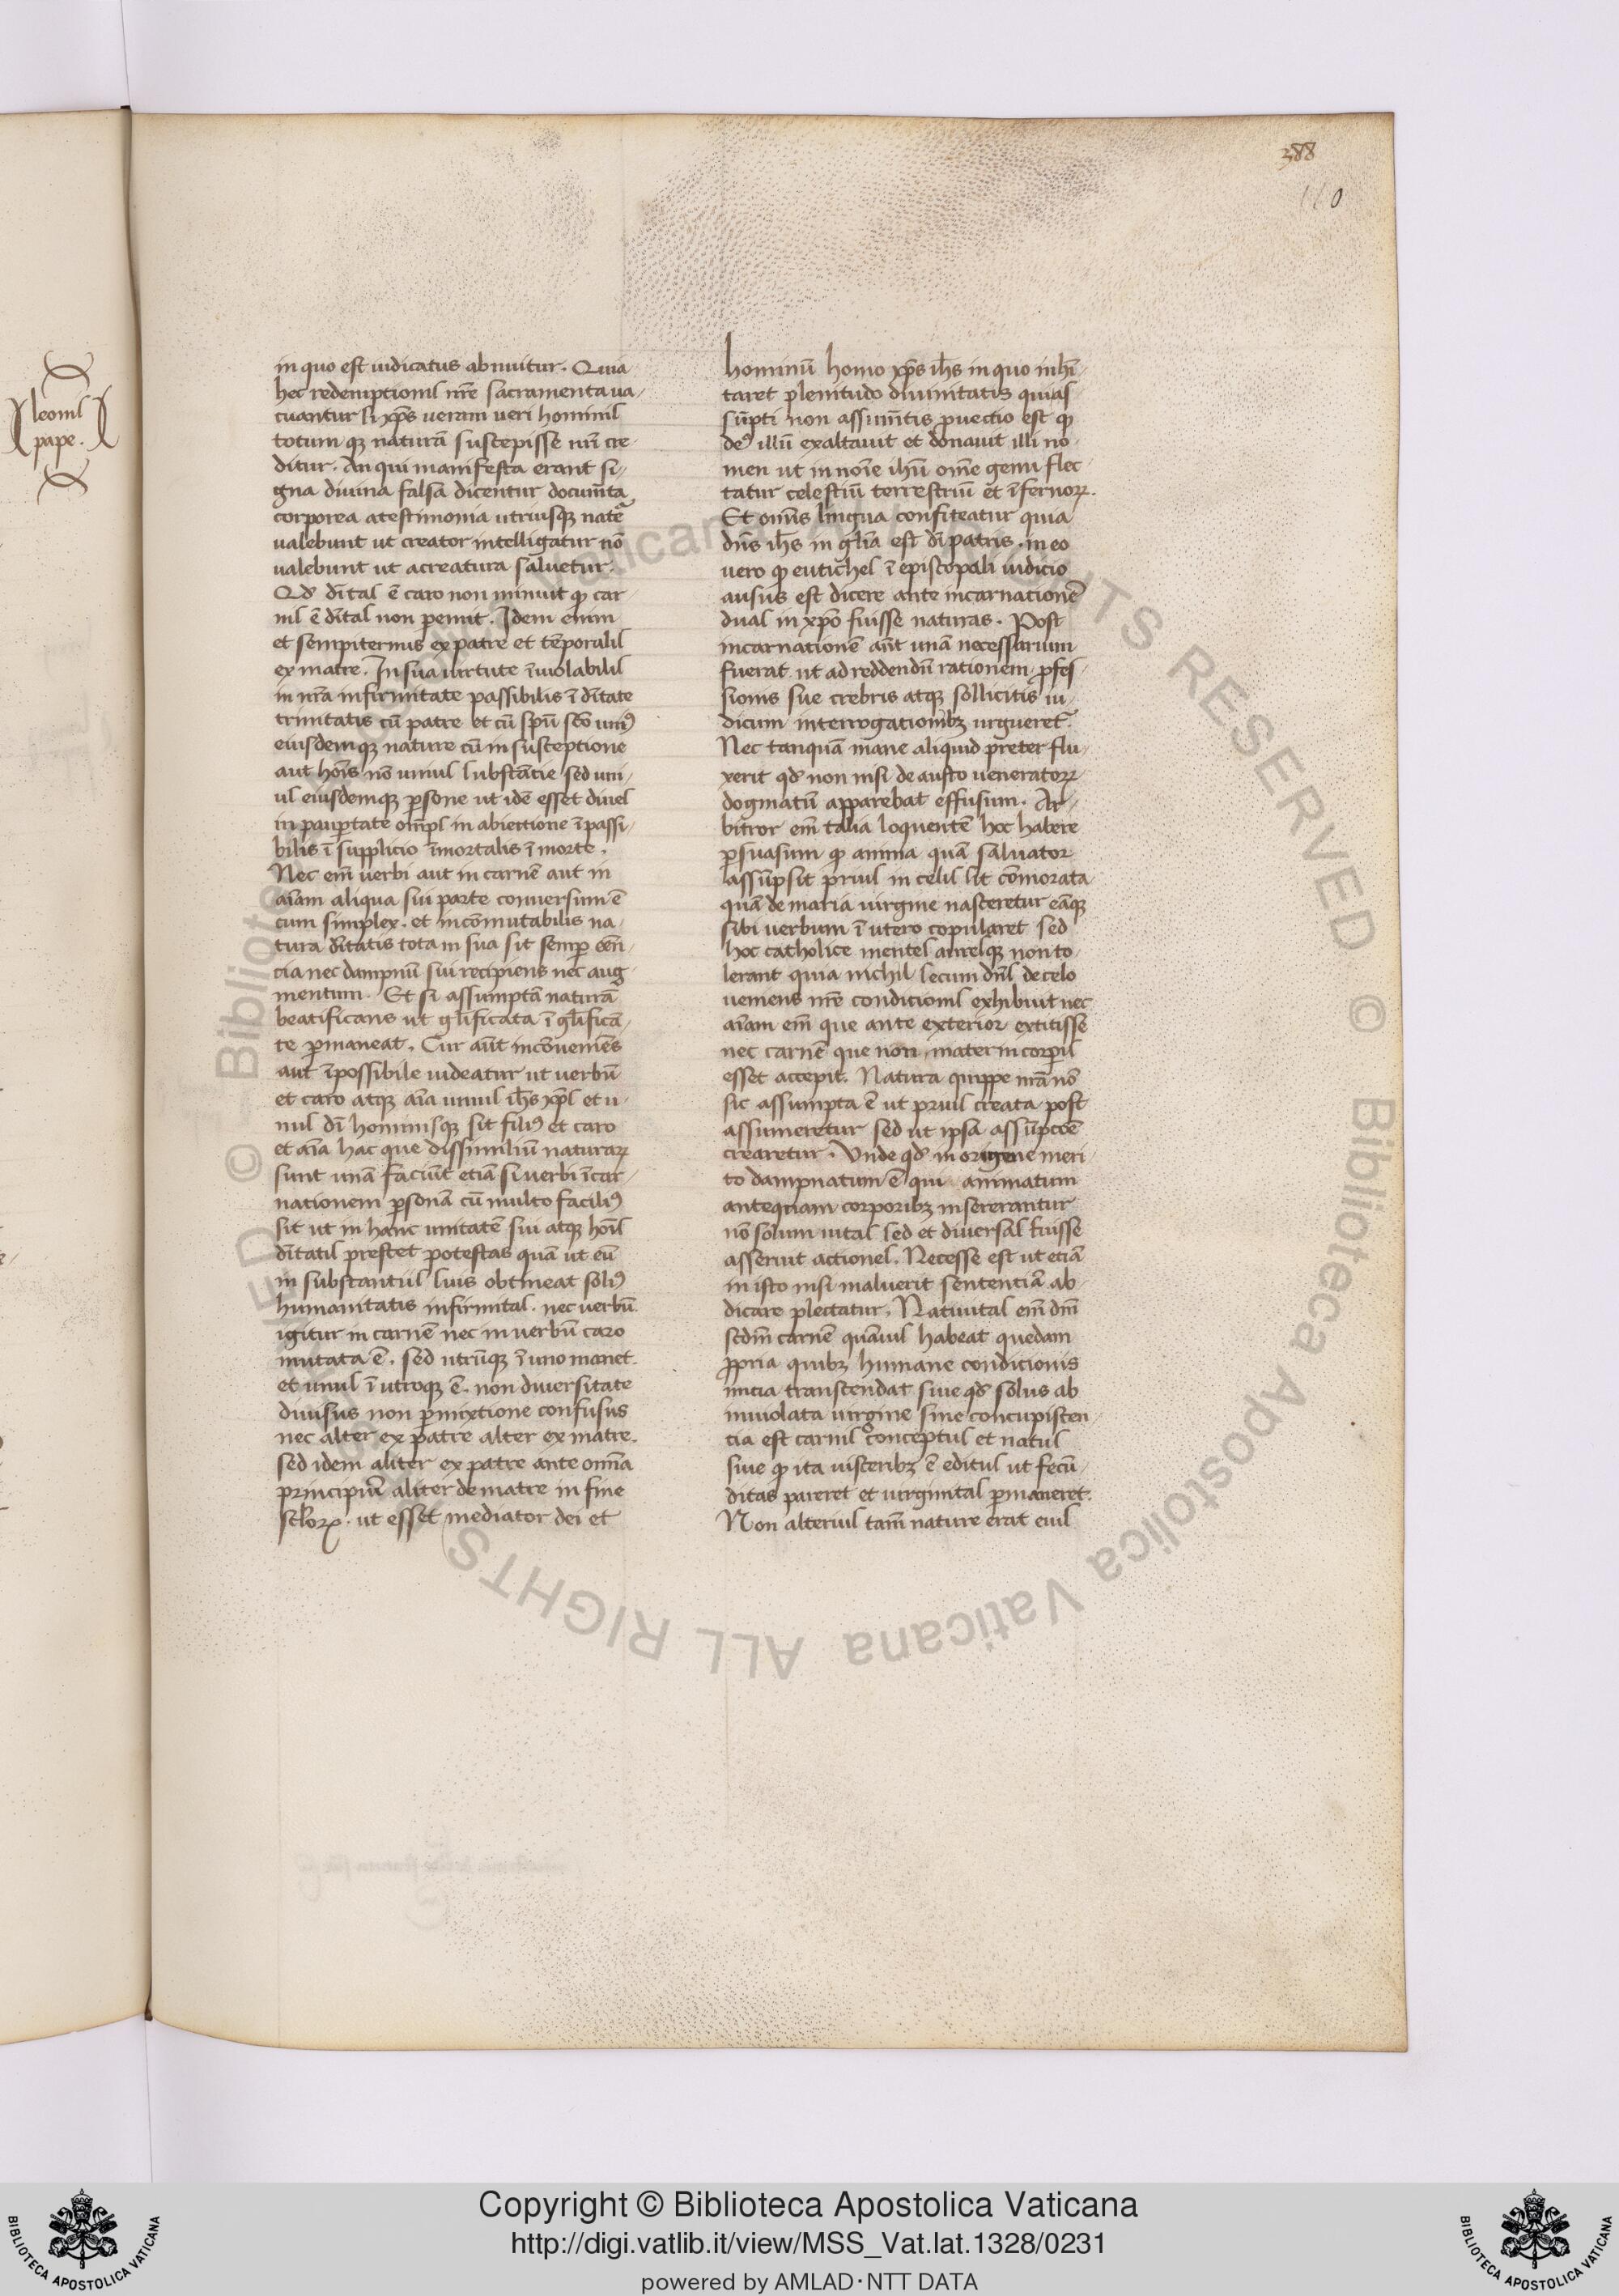 388
110
leonis
pape.
in quo est iudicatus abnuitur. Quia
hec redemptionis nr̄e sacramenta ua-
cuantur si xp̄s ueram ueri hominis
totum qȝ naturā suscepisse nō cre-
ditur. An qui manifesta erant si-
gna diuina falsa dicentur docum̄ta
corporea atestimonia utriusqȝ natē
ualebunt ut creator intelligatur nō
ualebunt ut acreatura saluetur.
Qđ dītas ē caro non minuit qđ car-
nis ē dītas non pemit. Idem enim
et sempiternus ex patre et tēporalis
ex matre. In sua uirtute īuiolabilis
in nr̄a infirmitate passibilis ī dītate
trinitatis cū patre et cū spū scō uniꝰ
eiusdemqȝ nature cū in susceptione
aut hoīs nō unius substātie sed uni-
us eiusdemqȝ psone ut idē esset diues
in paupertate omps in abiectione īpassi-
bilis ī supplicio īmortalis ī morte.
Nec em̄ uerbi aut in carnē aut in
aīam aliqua sui parte conuersum ē
cum simplex. et incōmutabilis na-
tura dītatis tota in sua sit semp eēn-
cia nec dampnū sui recipiens nec aug
mentum. Et si assumptā naturā
beatificans ut glīficata ī glīficā-
te pmaneat. Cur aūt incōueniēs
aut īpossibile uideatur ut uerbū
et caro atqȝ aīa unus ih̄s xp̄s et u-
nus dī hominisqȝ sit filiꝰ et caro
et aīa hac que dissimiliū naturaꝝ
sunt unā faciūt etiā si uerbi īcar-
nationem psonā cū multo faciliꝰ
sit ut in hanc unitatē sui atqȝ hoīs
dītatis prestet potestas quā ut eū
in substantiis suis obtineat soliꝰ
humanitatis infirmitas. nec uerbū
igitur in carnē nec in uerbū caro
mutata ē. sed utrūqȝ ī uno manet.
et unus ī utroqȝ ē. non diuersitate
diuisus non pmixtione confusus
nec alter ex patre alter ex matre.
sed idem aliter ex patre ante omnā
principiū aliter de matre in fine
sc̄loꝝ. ut esset mediator dei et
hominū homo xp̄s ih̄s in quo inhī-
taret plenitudo diuinitatis quias-
sūpti non assum̄tis puectio est qđ
deꝰ illū exaltauit et donauit illi no-
men ut in noīe ihū omē genu flec-
tatur celestiū terrestriū et īfernoꝝ.
Et omīs lingua confiteatur quia
dn̄s ih̄s in glīa est dī patris. in eo
uero qđ eutiches ī episcopali iudicio
ausus est dicere ante incarnationē
duas in xpō fuisse naturas. Post
incarnationē aūt unā necessarium
fuerat ut ad reddendū rationem pfes-
sionis sue crebris atqȝ sollicitis iu-
dicum interrogationibȝ urgueret.
Nec tanquā inane aliquid preter flu-
xerit qđ non nisi de austo ueneratoꝝ
dogmatū apparebat effusum. Ar-
bitror em̄ talia loquentē hoc habere
psuasum qđ anima quā saluator
assūpsit prius in celis sit cōmorata
quā de maria uirgine nasceretur eāqȝ
sibi uerbum ī utero copularet sed
hoc catholice mentes auresqȝ non to-
lerant quia nichil secum dn̄s de celo
ueniens nr̄e conditionis exhibuit nec
aīam em̄ que ante exterior extitisse
nec carnē que non materni corpīs
esset accepit. Natura quippe nrā nō
sic assumpta ē ut prius creata post
assumeretur sed ut ipsa assūpcōē
crearetur. Unde qđ in origene meri-
to dampnatum ē qui animatum
antequam corporibȝ insererantur
nō solum uitas sed et diuersas fuisse
asseruit actiones. Necesse est ut etiā
in isto nisi maluerit sententiā ab-
dicare plectatur. Natiuitas em̄ dnī
scdm̄ carnē quāuis habeat quedam
ppria quibȝ humane condicionis
inicia transcendat siue qđ solus ab
inuiolata uirgine sine concupiscen-
cia est carnis conceptus et natus
siue qđ ita uisceribȝ ē editus ut fecū-
ditas pareret et uirginitas pmaneret.
Non alterius tam̄ nature erat eius
Copyright © Biblioteca Apostolica Vaticana
http://digi.vatlib.it/view/MSS_Vat.lat.1328/0231
powered by AMLAD·NTT DATA
BIBLIOTECA APOSTOLICA VATICANA
BIBLIOTECA APOSTOLICA VATICANA
© Biblioteca Apostolica Vaticana ALL RIGHTS RESERVED © Biblioteca Apostolica Vaticana ALL RIGHTS RESERVED